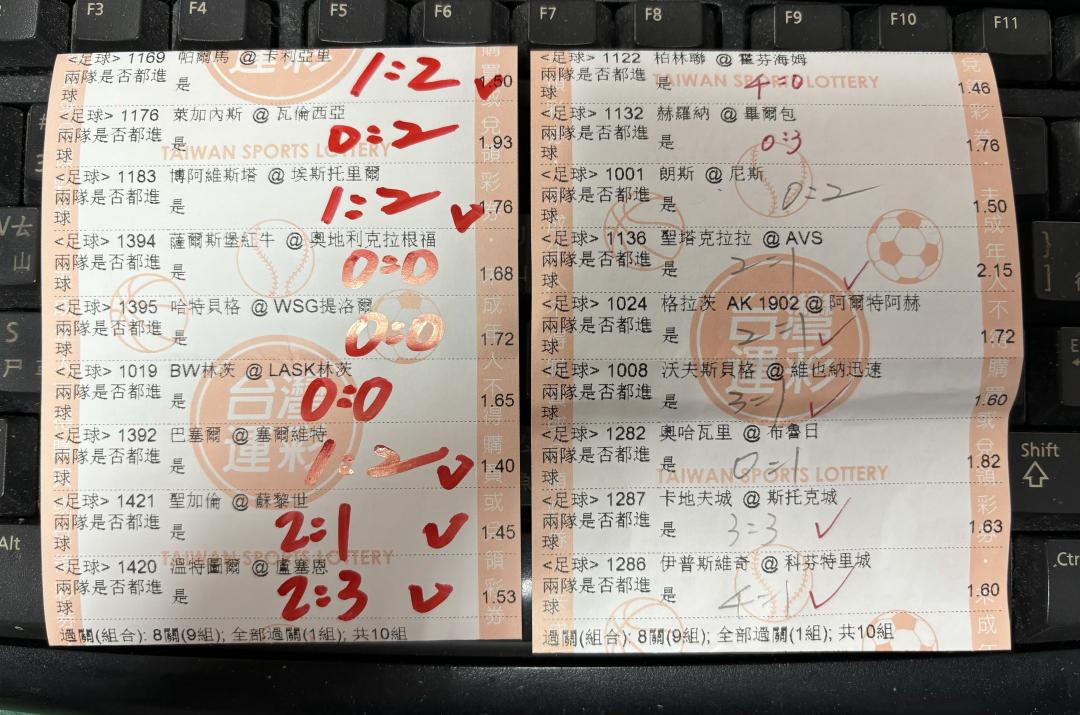 F3
F4
F5
F6
F7
F8
F9
F10
F11
<足球> 1169 帕爾馬 @ 卡利亞里
兩隊是否都進球 是 1.50
1:2
<足球> 1176 萊加內斯 @ 瓦倫西亞
兩隊是否都進球 是 1.93
0:2
TAIWAN SPORTS LOTTERY
<足球> 1183 博阿維斯塔 @ 埃斯托里爾
兩隊是否都進球 是 1.76
1:2
<足球> 1394 薩爾斯堡紅牛 @ 奧地利克拉根福
兩隊是否都進球 是 1.68
0:0
<足球> 1395 哈特貝格 @ WSG提洛爾
兩隊是否都進球 是 1.72
0:0
<足球> 1019 BW林茨 @ LASK林茨
兩隊是否都進球 是 1.65
0:0
台灣運彩
<足球> 1392 巴塞爾 @ 塞爾維特
兩隊是否都進球 是 1.40
1:2
<足球> 1421 聖加倫 @ 蘇黎世
兩隊是否都進球 是 1.45
2:1
TAIWAN SPORTS LOTTERY
<足球> 1420 溫特圖爾 @ 盧塞恩
兩隊是否都進球 是 1.53
2:3
過關(組合): 8關(9組); 全部過關(1組); 共10組
<足球> 1122 柏林聯 @ 霍芬海姆
兩隊是否都進球 是 1.46
4:0
TAIWAN SPORTS LOTTERY
<足球> 1132 赫羅納 @ 畢爾包
兩隊是否都進球 是 1.76
0:3
<足球> 1001 朗斯 @ 尼斯
兩隊是否都進球 是 1.50
0:2
<足球> 1136 聖塔克拉拉 @ AVS
兩隊是否都進球 是 2.15
2:1
<足球> 1024 格拉茨 AK 1902 @ 阿爾特阿赫
兩隊是否都進球 是 1.72
2:1
台灣運彩
<足球> 1008 沃夫斯貝格 @ 維也納迅速
兩隊是否都進球 是 1.60
3:1
<足球> 1282 奧哈瓦里 @ 布魯日
兩隊是否都進球 是 1.82
0:1
TAIWAN SPORTS LOTTERY
<足球> 1287 卡地夫城 @ 斯托克城
兩隊是否都進球 是 1.63
3:3
<足球> 1286 伊普斯維奇 @ 科芬特里城
兩隊是否都進球 是 1.60
4:1
過關(組合): 8關(9組); 全部過關(1組); 共10組
Shift
Alt